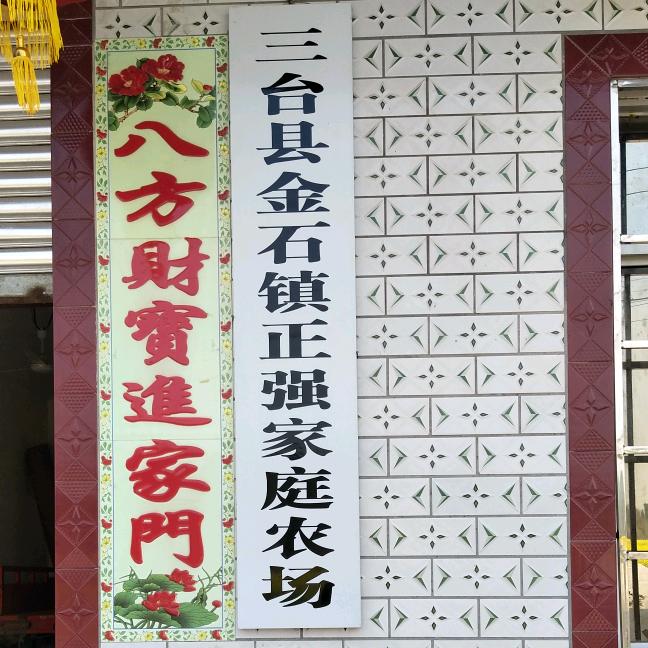 八方財寶進家門
三台县金石镇正强家庭农场